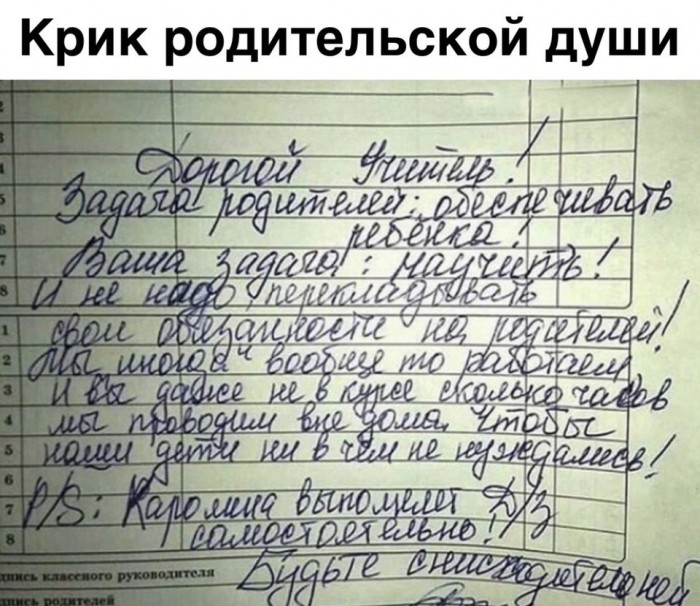 Крик родительской души
Дорогой Учитель!
Задача родителей: обеспечивать
ребёнка!
Ваша задача: научить!
И не надо перекладывать
свои обязанности на родителей!
Мы иногда вообще то работаем
И вы даже не в курсе сколько часов
мы проводим вне дома, чтобы
наши дети ни в чём не нуждались!
P/S: Каролина выполняет Д/з
самостоятельно!
Будьте снисходительней
дпись классного руководителя
пись родителей
2
3
4
5
6
7
8
1
2
3
4
5
6
7
8